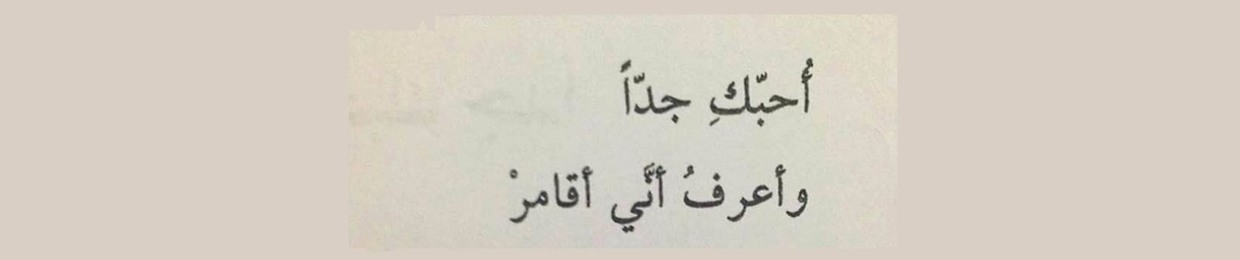 أُحبّكِ جدّاً
وأعرفُ أنَّي أقامرْ